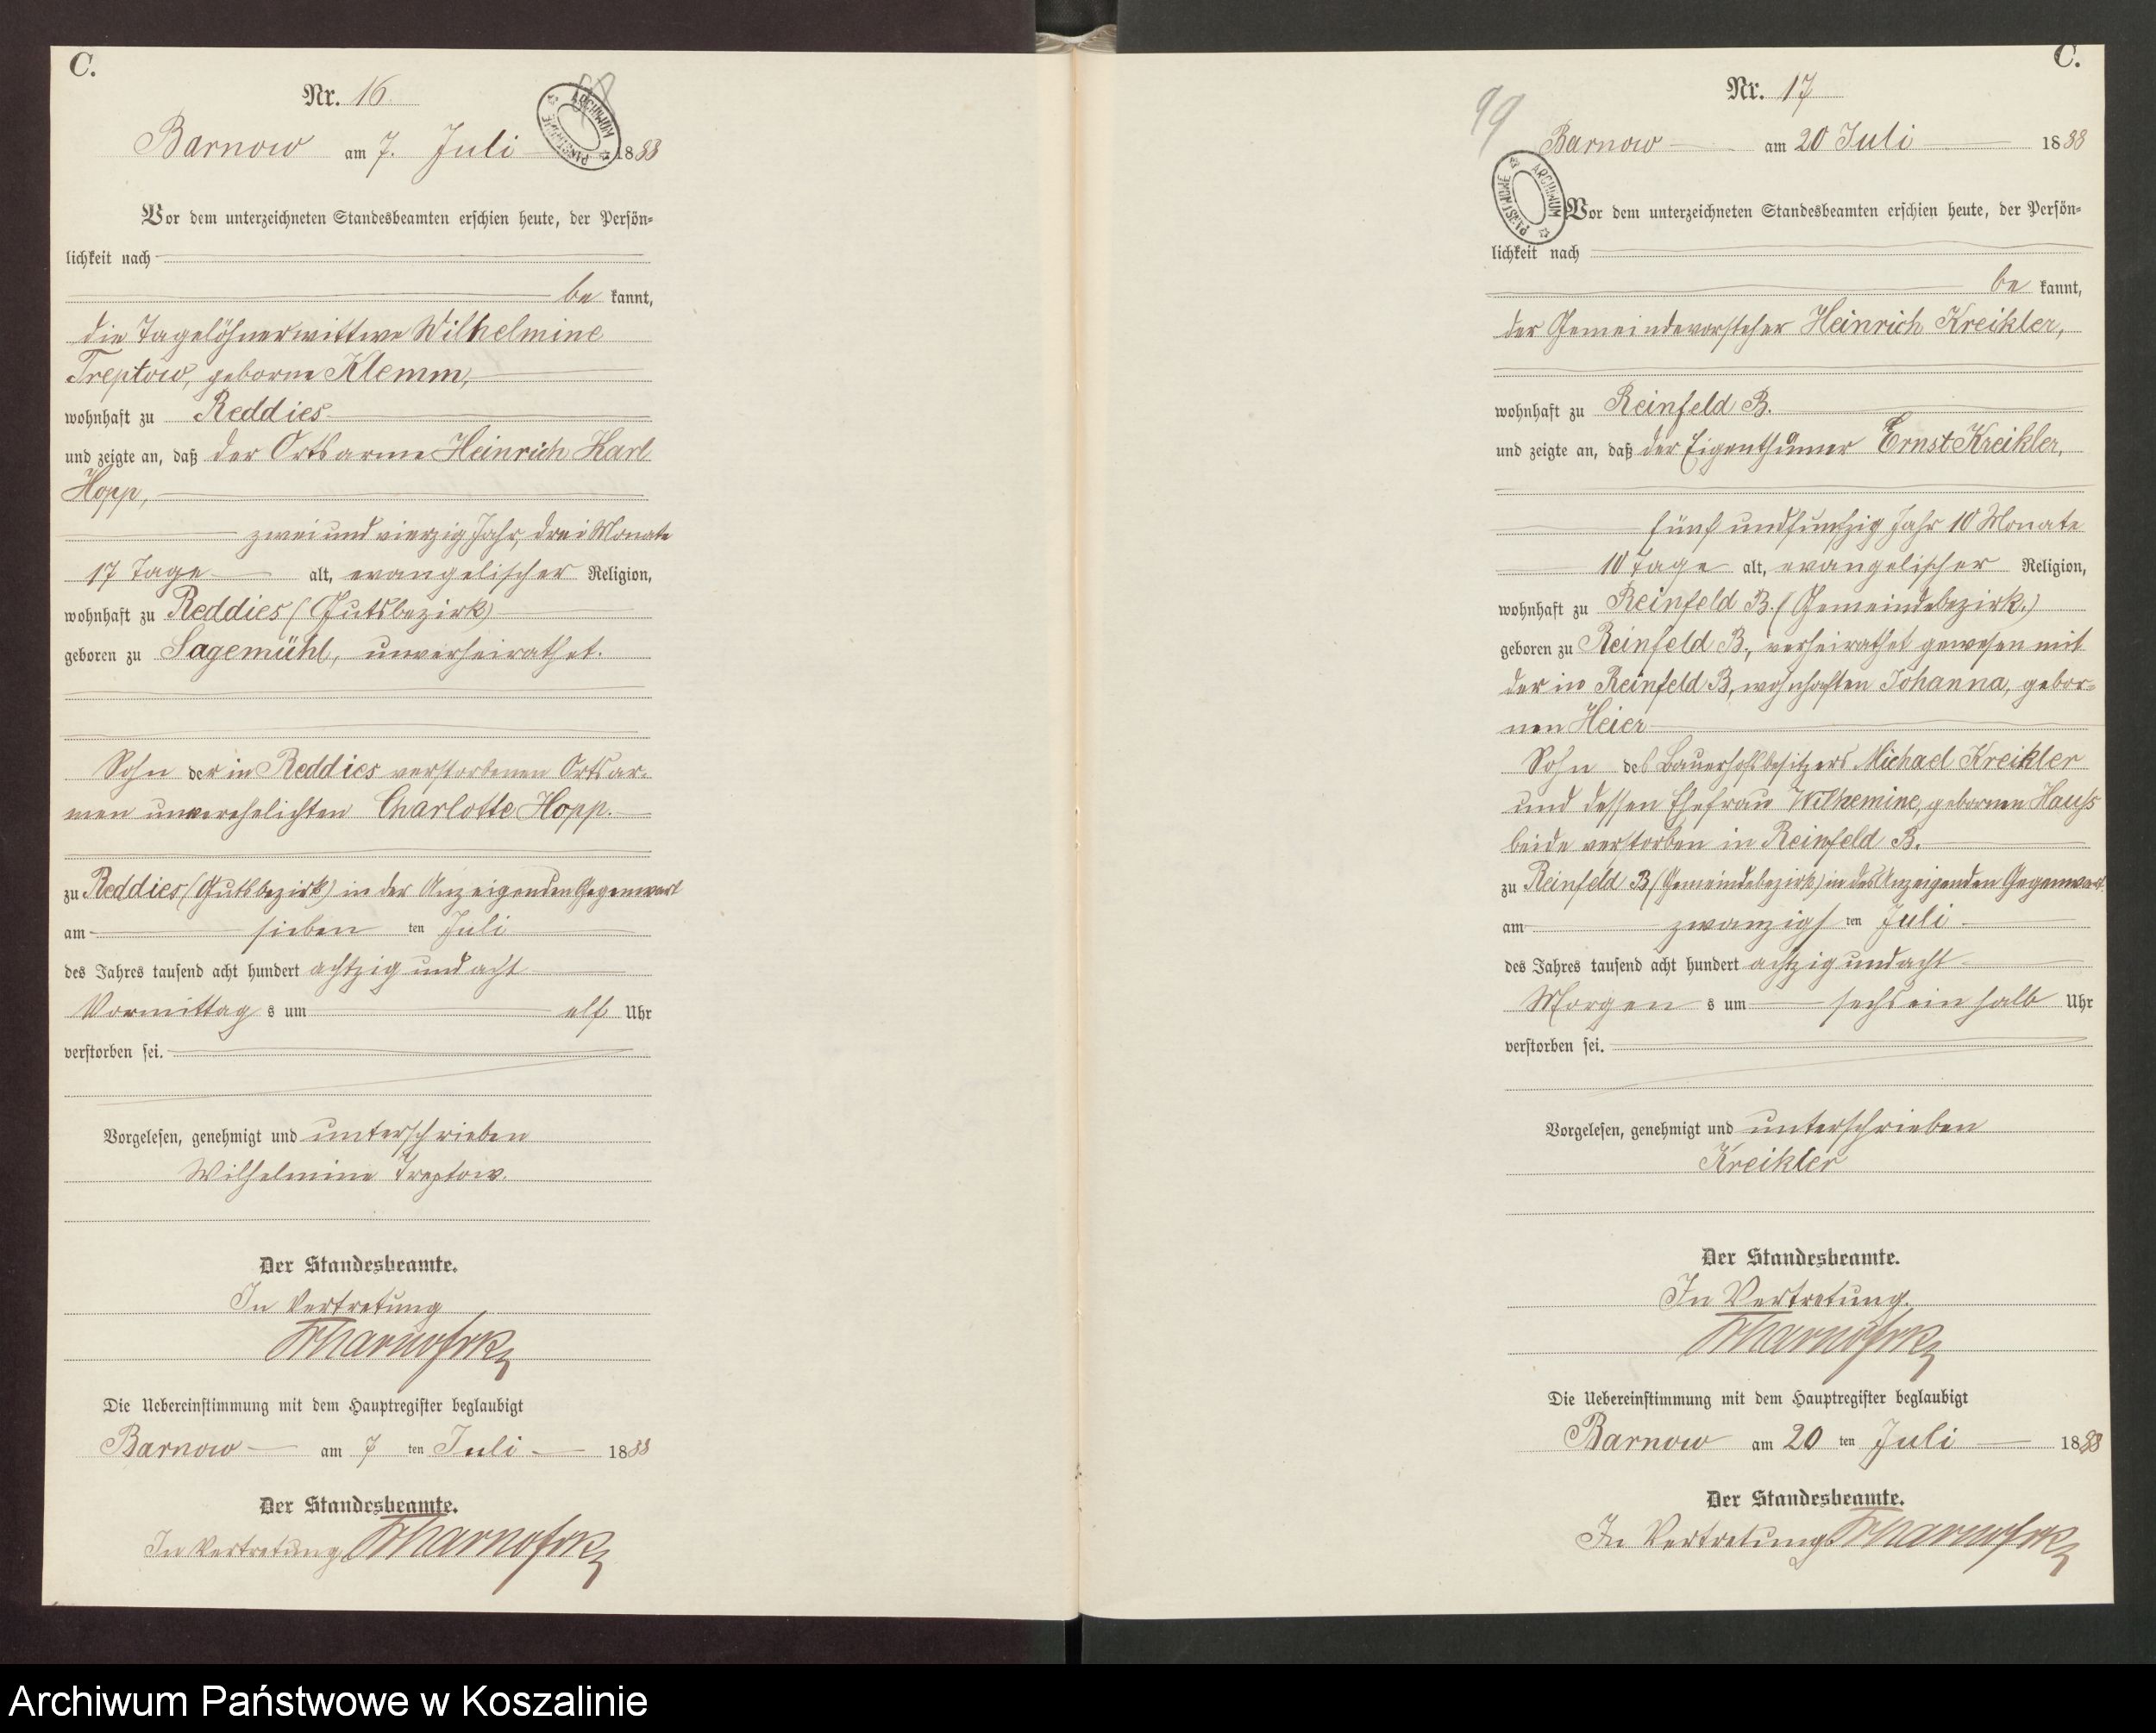 C.
Nr. 16
98
ARCHIWUM PAŃSTWOWE
Barnow am 7. Juli 1888
Vor dem unterzeichneten Standesbeamten erschien heute, der Persön=
lichkeit nach
be kannt,
die Tagelöhnerwittwe Wilhelmine
Treptow, geborne Klemm,
wohnhaft zu Reddies
und zeigte an, daß der Ortsarme Heinrich Karl
Hopp,
zwei und vierzig Jahr, drei Monate
17 Tage alt, evangelischer Religion,
wohnhaft zu Reddies (Gutsbezirk)
geboren zu Sagemühl, unverheirathet.
Sohn der in Reddies verstorbenen Ortsar-
men unverehelichten Charlotte Hopp.
zu Reddies (Gutsbezirk) in der Anzeigenden Gegenwart
am sieben ten Juli
des Jahres tausend acht hundert achtzig und acht
Vormittag s um elf Uhr
verstorben sei.
Vorgelesen, genehmigt und unterschrieben
Wilhelmine Treptow.
Der Standesbeamte.
In Vertretung
Die Uebereinstimmung mit dem Hauptregister beglaubigt
Barnow am 7 ten Juli 1888
Der Standesbeamte.
In Vertretung
C.
Nr. 17
99
ARCHIWUM PAŃSTWOWE
Barnow am 20 Juli 1888
Vor dem unterzeichneten Standesbeamten erschien heute, der Persön=
lichkeit nach
be kannt,
der Gemeindevorsteher Heinrich Kreikler,
wohnhaft zu Reinfeld B.
und zeigte an, daß der Eigenthümer Ernst Kreikler,
fünf und funfzig Jahr 10 Monate
10 Tage alt, evangelischer Religion,
wohnhaft zu Reinfeld B. (Gemeindebezirk.)
geboren zu Reinfeld B., verheirathet gewesen mit
der in Reinfeld B. wohnhaften Johanna, gebor=
nen Heier
Sohn des Bauerhofsbesitzers Michael Kreikler
und dessen Ehefrau Wilhemine, gebornen Hauß
beide verstorben in Reinfeld B.
zu Reinfeld B (Gemeindebezirk) in des Anzeigenden Gegenwart
am zwanzigs ten Juli
des Jahres tausend acht hundert achtzig und acht
Morgen s um sechs ein halb Uhr
verstorben sei.
Vorgelesen, genehmigt und unterschrieben
Kreikler
Der Standesbeamte.
In Vertretung.
Die Uebereinstimmung mit dem Hauptregister beglaubigt
Barnow am 20 ten Juli 1888
Der Standesbeamte.
In Vertretung
Archiwum Państwowe w Koszalinie